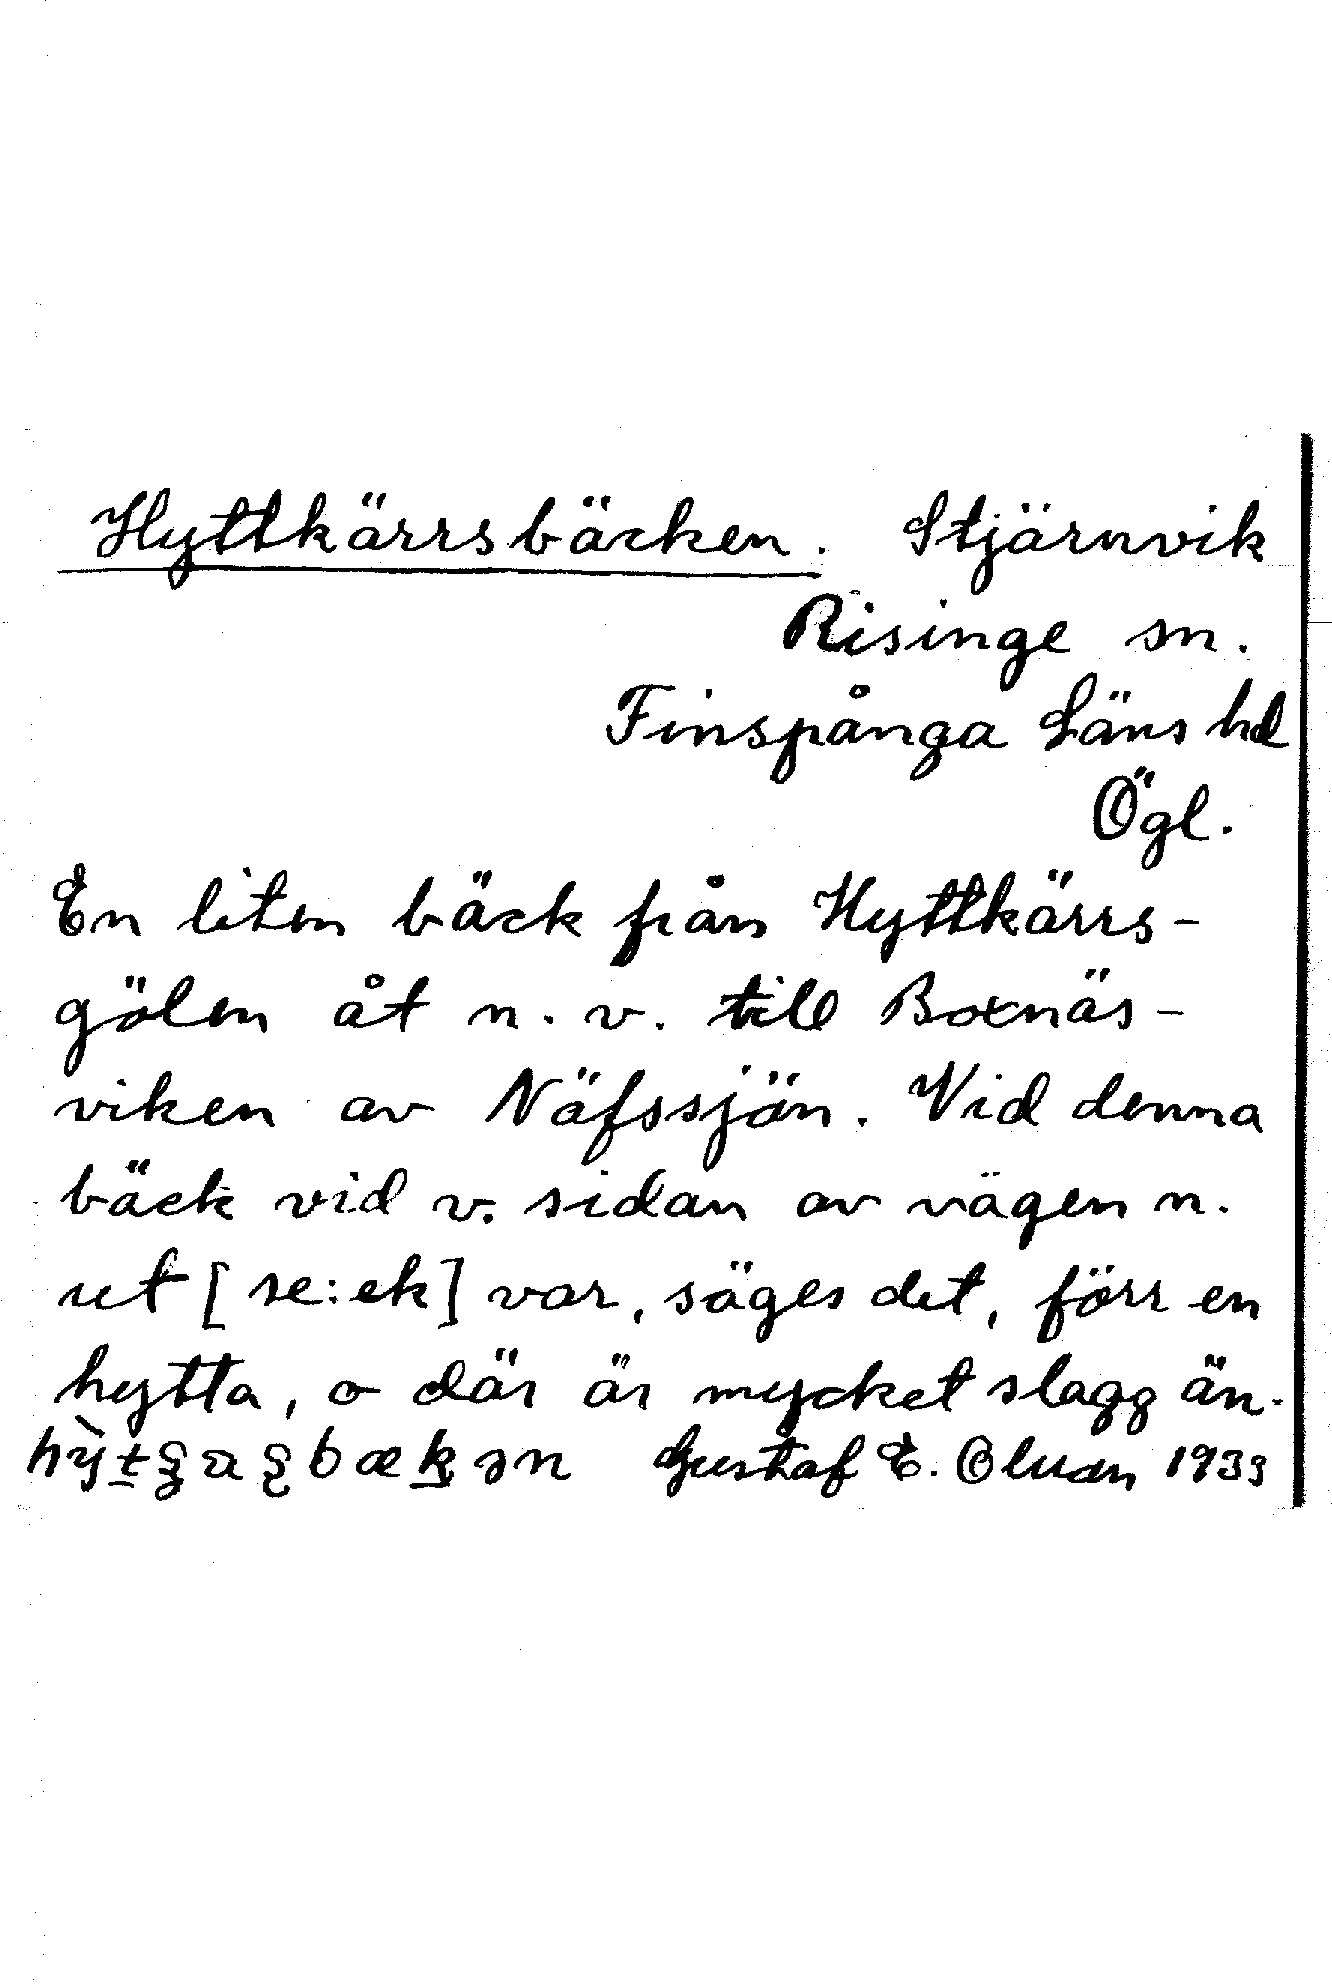 Hyttkärrsbäcken. Stjärnvik
Risinge sn.
Finspånga Läns hd
Ögl.
En liten bäck från Hyttkärrs-
gölen åt n.v. till Boxnäs-
viken av Näfssjön. Vid denna
bäck vid v. sidan av vägen n.
ut [se: ek] var, säges det, förr en
hytta, o där är mycket slagg än.
Gustaf E. 1933